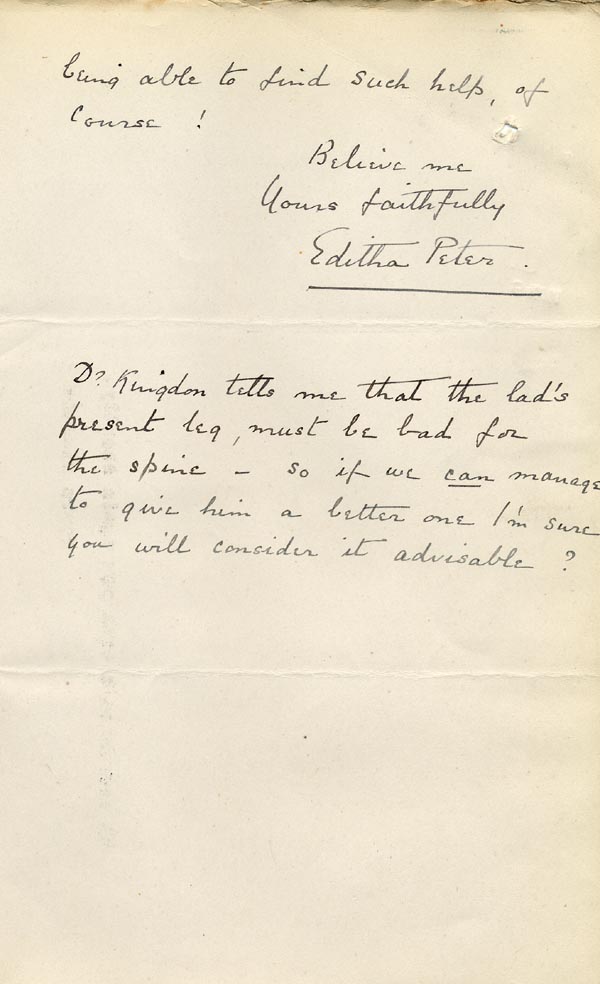 being able to find such help, of
course !
Believe me
Yours faithfully
Editha Peter.
Dr Kingdon tells me that the lad's
present leg, must be bad for
the spine – so if we can manage
to give him a better one I'm sure
you will consider it advisable ?